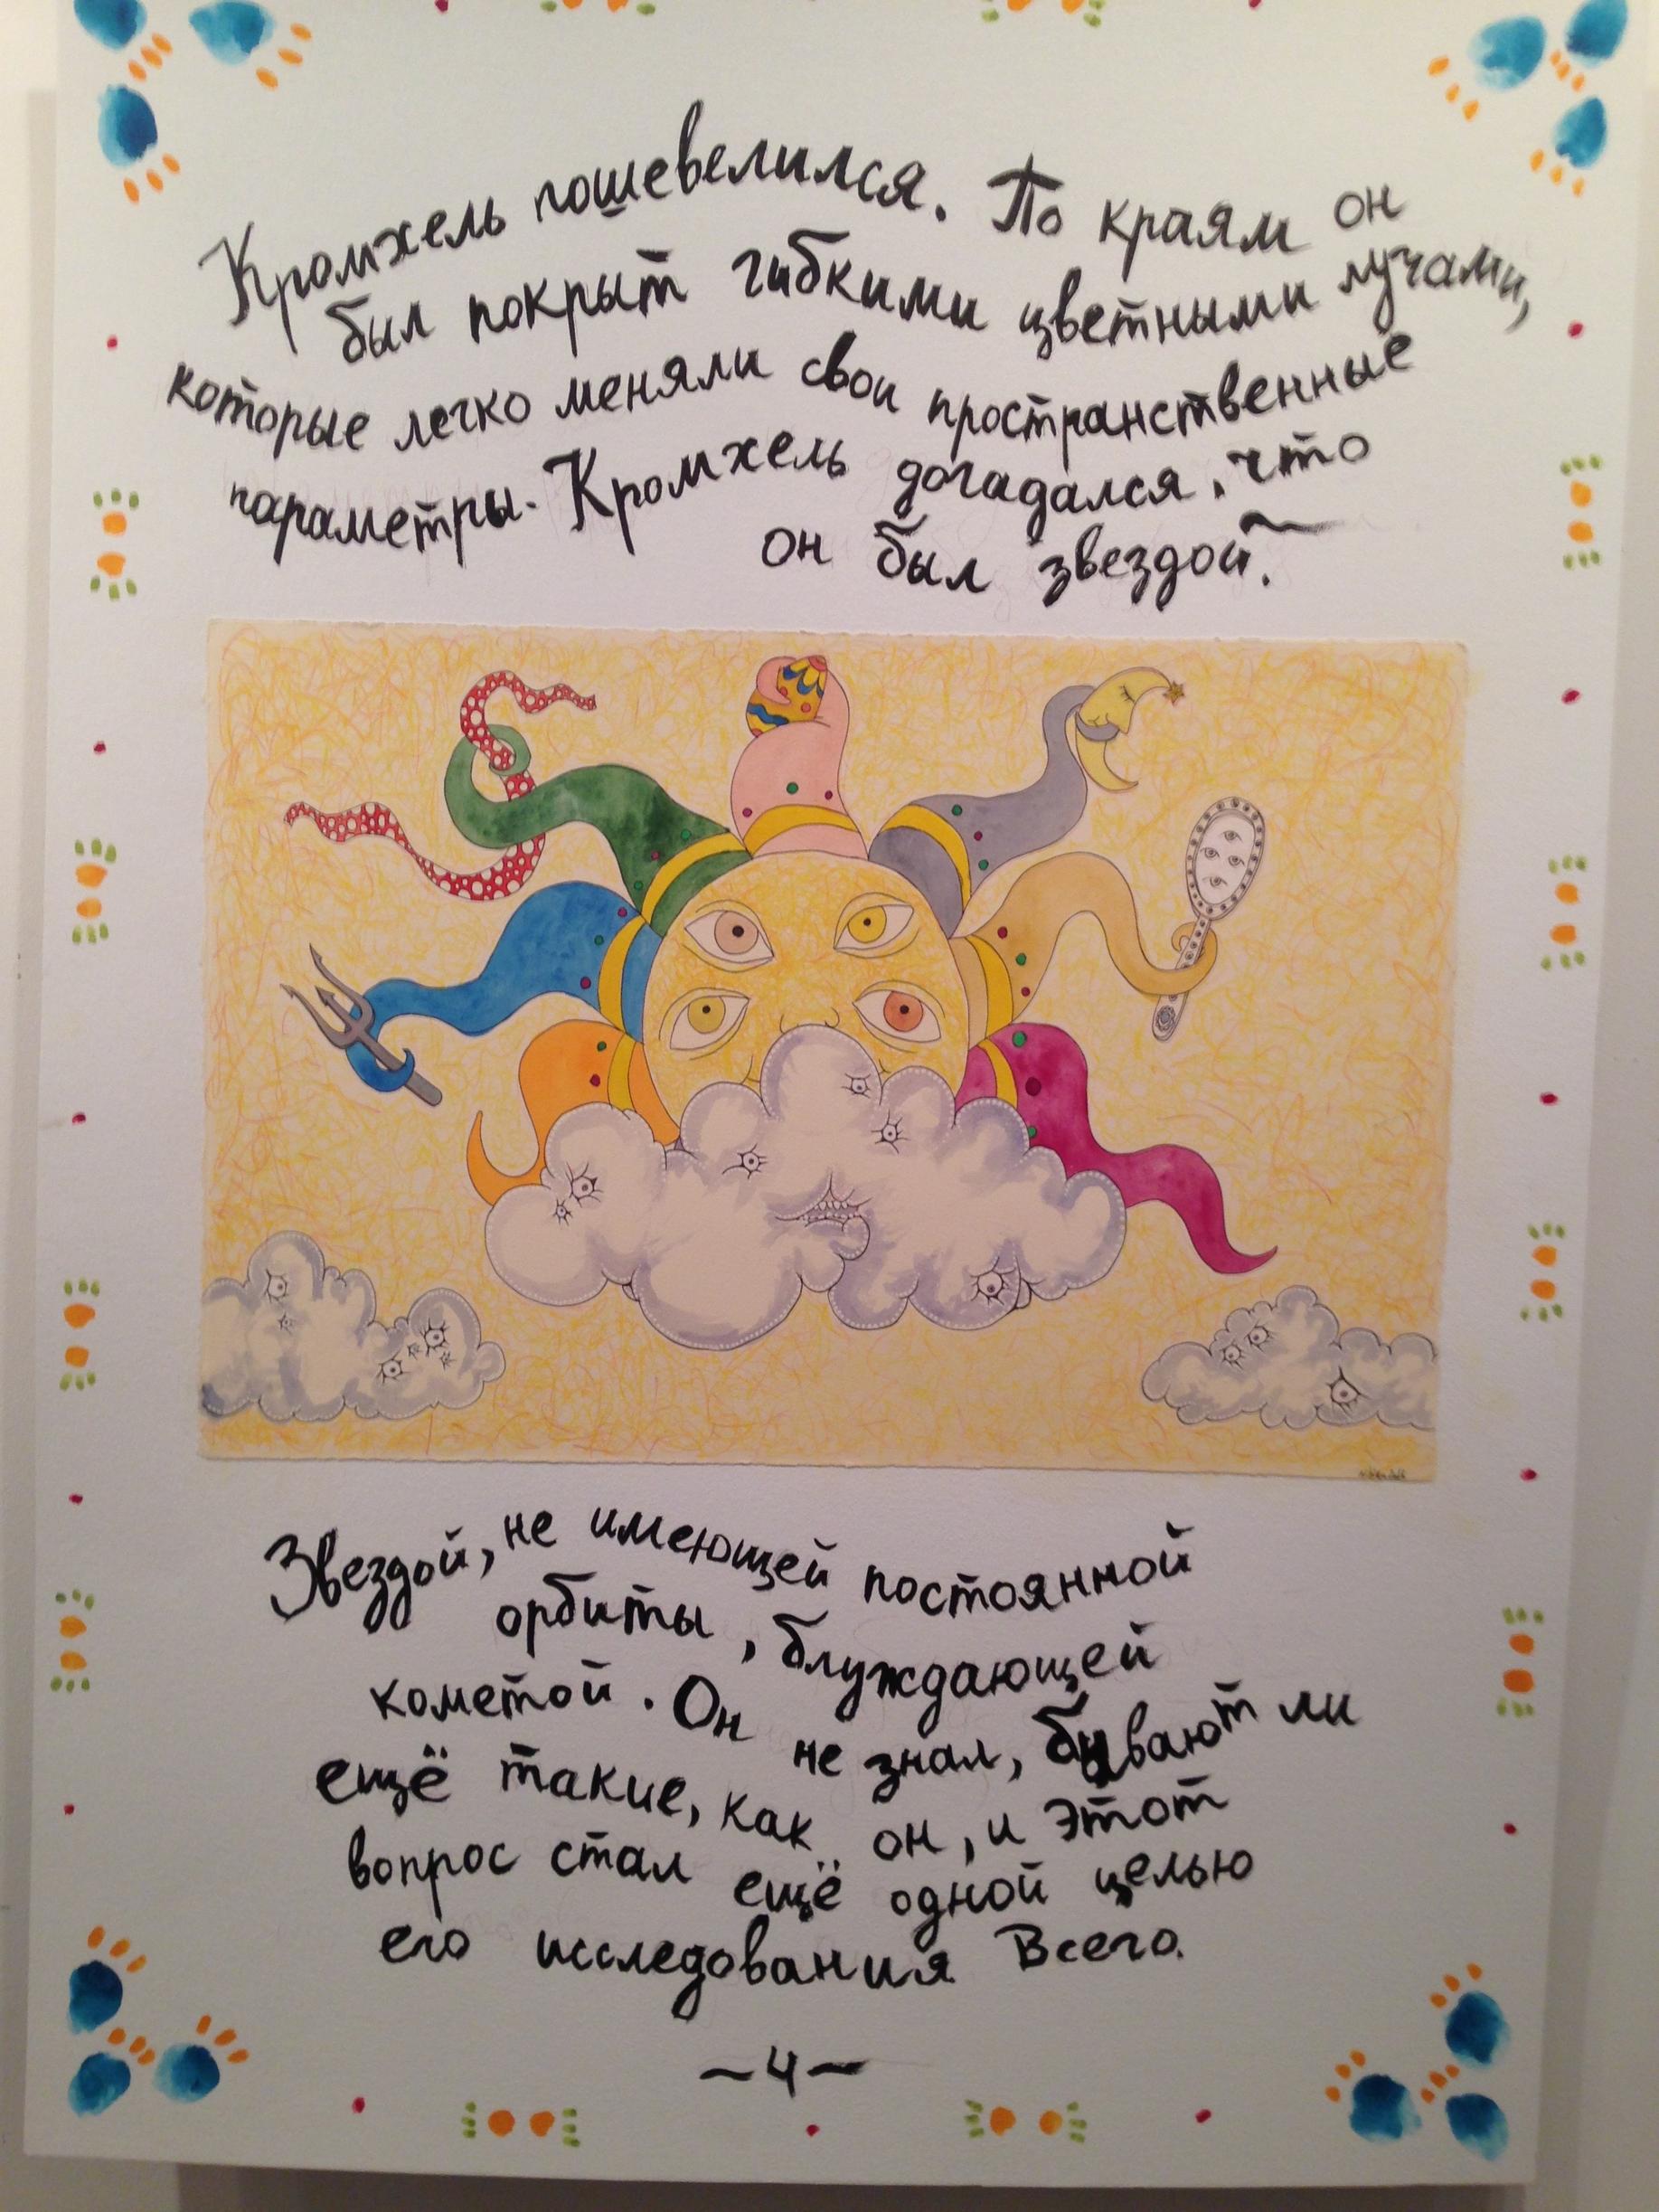 Кромхель пошевелился. По краям он
был покрыт гибкими цветными лучами,
которые легко меняли свои пространственные
параметры. Кромхель догадался, что
он был звездой.
Звездой, не имеющей постоянной
орбиты, блуждающей
кометой. Он не знал, бывают ли
ещё такие, как он, и этот
вопрос стал ещё одной целью
его исследования Всего.
~4~